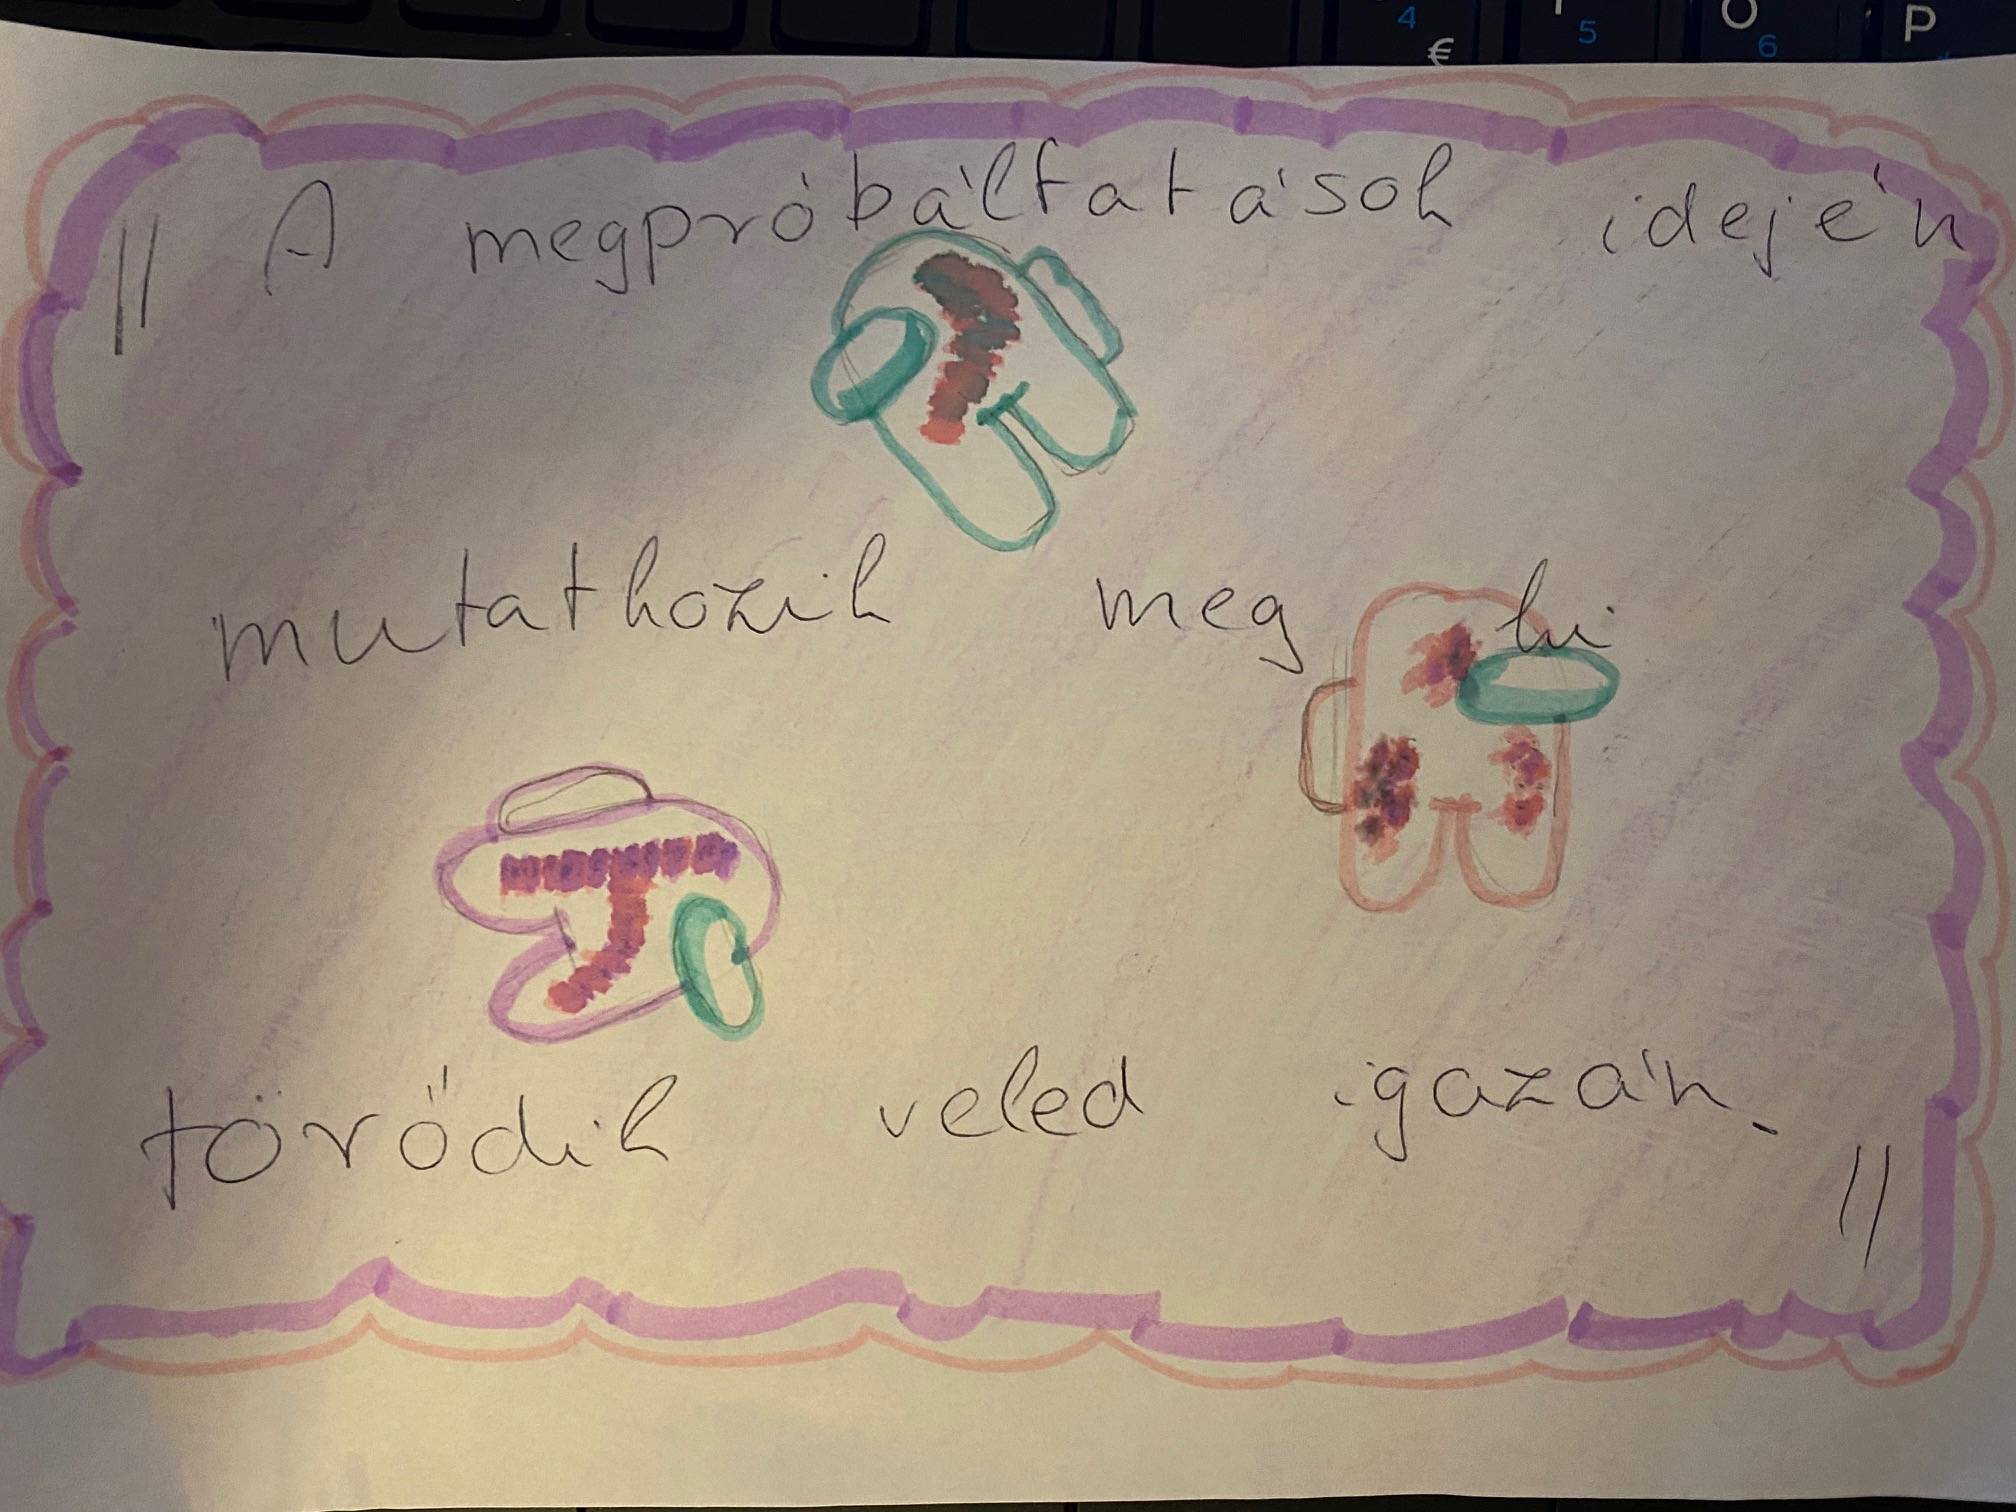 4 5 O 6 P
€
" A megpróbáltatások idején
mutatkozik meg ki
törődik veled igazán. "